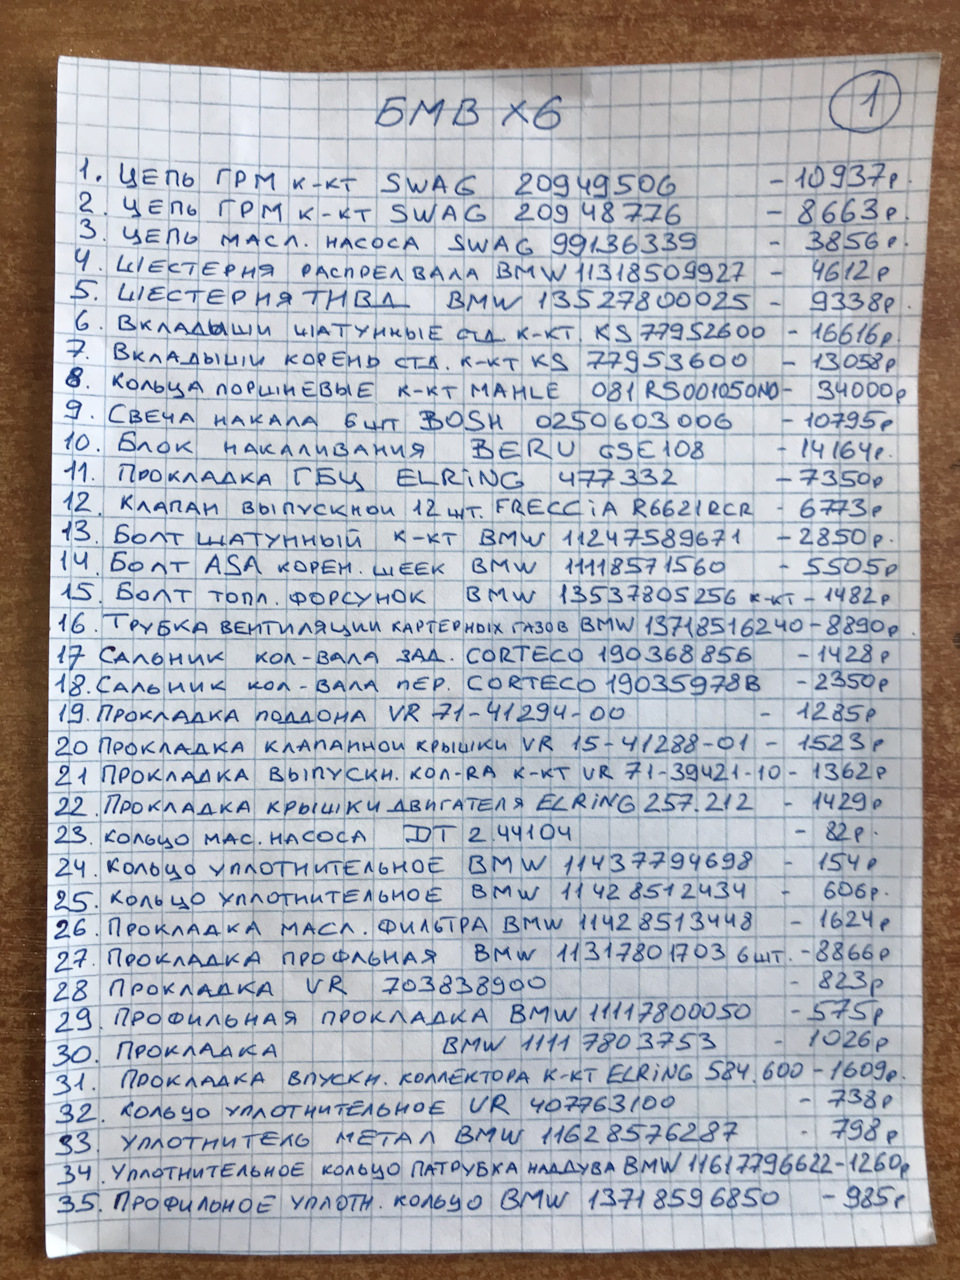 БМВ X6
1
1. ЦЕПЬ ГРМ К-КТ SWAG 20949506 - 10937р.
2. ЦЕПЬ ГРМ К-КТ SWAG 20948776 - 8663р.
3. ЦЕПЬ МАСЛ. НАСОСА SWAG 99136339 - 3856р.
4. ШЕСТЕРНЯ РАСПРЕЛ ВАЛА BMW 11318509927 - 4612р
5. ШЕСТЕРНЯ ТНВД BMW 13527800025 - 9338р.
6. ВКЛАДЫШИ ШАТУННЫЕ СТД К-КТ. KS 77952600 - 16616р.
7. ВКЛАДЫШИ КОРЕНЬ СТД. К-КТ KS 77953600 - 13058р
8. КОЛЬЦА ПОРШНЕВЫЕ К-КТ MAHLE 081RS001050N0 - 34000р
9. СВЕЧА НАКАЛА 6шт BOSH 0250603006 - 10795р
10. БЛОК НАКАЛИВАНИЯ BERU GSE108 - 14164р.
11. ПРОКЛАДКА ГБЦ ELRING 477332 - 7350р
12. КЛАПАН ВЫПУСКНОЙ 12шт. FRECCIA R6621RCR - 6773р
13. БОЛТ ШАТУННЫЙ К-КТ BMW 11247589671 - 2850р.
14. БОЛТ ASA КОРЕН. ШЕЕК BMW 11118571560 - 5505р
15. БОЛТ ТОПЛ. ФОРСУНОК BMW 13537805256 К-КТ - 1482р
16. ТРУБКА ВЕНТИЛЯЦИИ КАРТЕРНЫХ ГАЗОВ BMW 13718516240 - 8890р.
17 САЛЬНИК КОЛ-ВАЛА ЗАД. CORTECO 19036885б - 1428р
18. САЛЬНИК КОЛ-ВАЛА ПЕР. CORTECO 19035978B - 2350р
19. ПРОКЛАДКА ПОДДОНА VR 71-41294-00 - 1285р
20 ПРОКЛАДКА КЛАПАННОЙ КРЫШКИ VR 15-41288-01 - 1523р
21 ПРОКЛАДКА ВЫПУСКН. КОЛ-RA К-КТ VR 71-39421-10 - 1362р
22. ПРОКЛАДКА КРЫШКИ ДВИГАТЕЛЯ ELRING 257.212 - 1429р
23. КОЛЬЦО МАС. НАСОСА DT 2.44104 - 82р.
24. КОЛЬЦО УПЛОТНИТЕЛЬНОЕ BMW 11437794698 - 154р
25. КОЛЬЦО УПЛОТНИТЕЛЬНОЕ BMW 11428512434 - 606р.
26. ПРОКЛАДКА МАСЛ. ФИЛЬТРА BMW 11428513448 - 1624р
27. ПРОКЛАДКА ПРОФЛЬНАЯ BMW 11317801703 6шт. - 8866р
28 ПРОКЛАДКА VR 703838900 - 823р
29. ПРОФИЛЬНАЯ ПРОКЛАДКА BMW 11117800050 - 575р
30. ПРОКЛАДКА BMW 11117803753 - 1026р
31. ПРОКЛАДКА ВПУСКН. КОЛЛЕКТОРА К-КТ ELRING 584.600 - 1609р.
32. КОЛЬЦО УПЛОТНИТЕЛЬНОЕ VR 407763100 - 738р
33 УПЛОТНИТЕЛЬ МЕТАЛ BMW 11628576287 - 798р
34. УПЛОТНИТЕЛЬНОЕ КОЛЬЦО ПАТРУБКА НАДДУВА BMW 11617796622 - 1260р
35. ПРОФИЛЬНОЕ УПЛОТН. КОЛЬЦО BMW 13718596850 - 985р